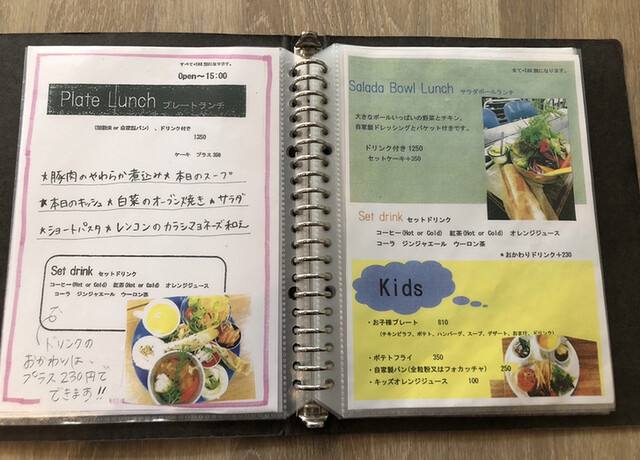 すべて+TAX別になります。
Open～15:00
Plate Lunch プレートランチ
(加勢米 or 自家製パン) 、ドリンク付き
1350
ケーキ プラス350
★豚肉のやわらか煮込み★本日のスープ
★本日のキッシュ★白菜のオーブン焼き★サラダ
★ショートパスタ★レンコンのカラシマヨネーズ和え
Set drink セットドリンク
コーヒー(Hot or Cold) 紅茶(Hot or Cold) オレンジジュース
コーラ ジンジャエール ウーロン茶
ドリンクの
おかわりは、
プラス230円で
できます!!
全て+TAX別になります。
Salada Bowl Lunch サラダボールランチ
大きなボールいっぱいの野菜とチキン。
自家製ドレッシングとバケット付きです。
ドリンク付き 1250
セットケーキ+350
Set drink セットドリンク
コーヒー(Hot or Cold) 紅茶(Hot or Cold) オレンジジュース
コーラ ジンジャエール ウーロン茶
*おかわりドリンク+230
Kids
・お子様プレート 810
(チキンピラフ、ポテト、ハンバーグ、スープ、デザート、おまけ、ドリンク)
・ポテトフライ 350
・自家製パン(全粒粉又はフォカッチャ) 250
・キッズオレンジジュース 100